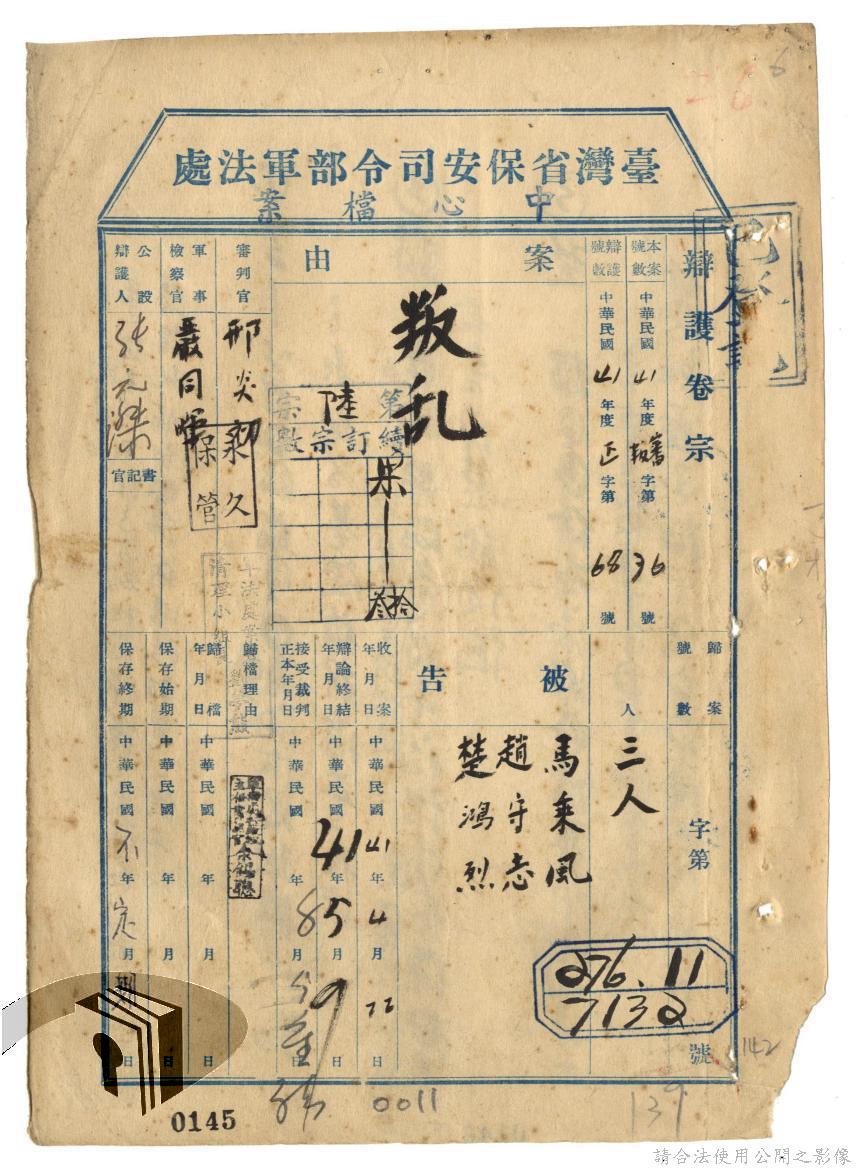 臺灣省保安司令部軍法處
中心檔案
辯護卷宗
本案號數 中華民國41年度審叛字第36號
辯護號數 中華民國41年度正字第68號
案由
叛乱
第 宗
續訂宗數
陸
審判官 邢炎初
軍事檢察官 嚴同暉
公設辯護人 張元傑
書記官
永久保管
歸案號數 字第 號
276.11
7132
人 三人
被告
馬乘風
趙守志
楚鴻烈
收案年月日 中華民國41年4月22日
辯論終結年月日 中華民國41年5月9日
接受裁判正本年月日 中華民國 年 月 日
歸檔理由
歸檔年月日 中華民國 年 月 日
保存始期 中華民國 年 月 日
保存終期 中華民國不年定月期日
清理小組
0145
0011
139
142
6
請合法使用公開之影像